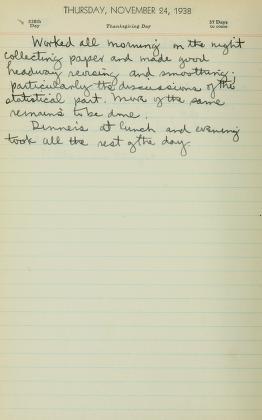 THURSDAY, NOVEMBER 24, 1938
328th Day
Thanksgiving Day
37 Days to come
Worked all morning on the night
collecting paper and made good
headway revising and smoothing,
particularly the discussions of the
statistical part. More of the same
remains to be done.
Dinners at lunch and evening
took all the rest of the day.